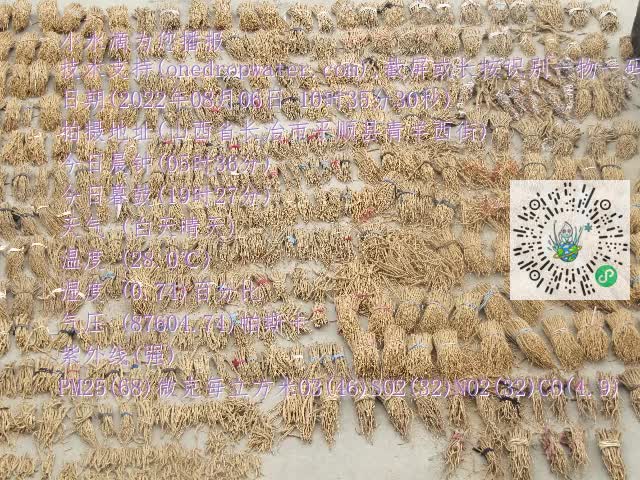 小水滴为您播报
技术支持(onedropwater.com) 截屏或长按识别一物一码
日期(2022年08月06日 10时35分30秒)
拍摄地址(山西省长治市平顺县青羊西街)
今日晨钟(05时36分)
今日暮鼓(19时27分)
天气 (白天晴天)
温度 (28.0℃)
湿度 (0.74)百分比
气压 (87604.74)帕斯卡
紫外线(强)
PM25(68)微克每立方米O3(46)SO2(32)NO2(32)CO(4.9)